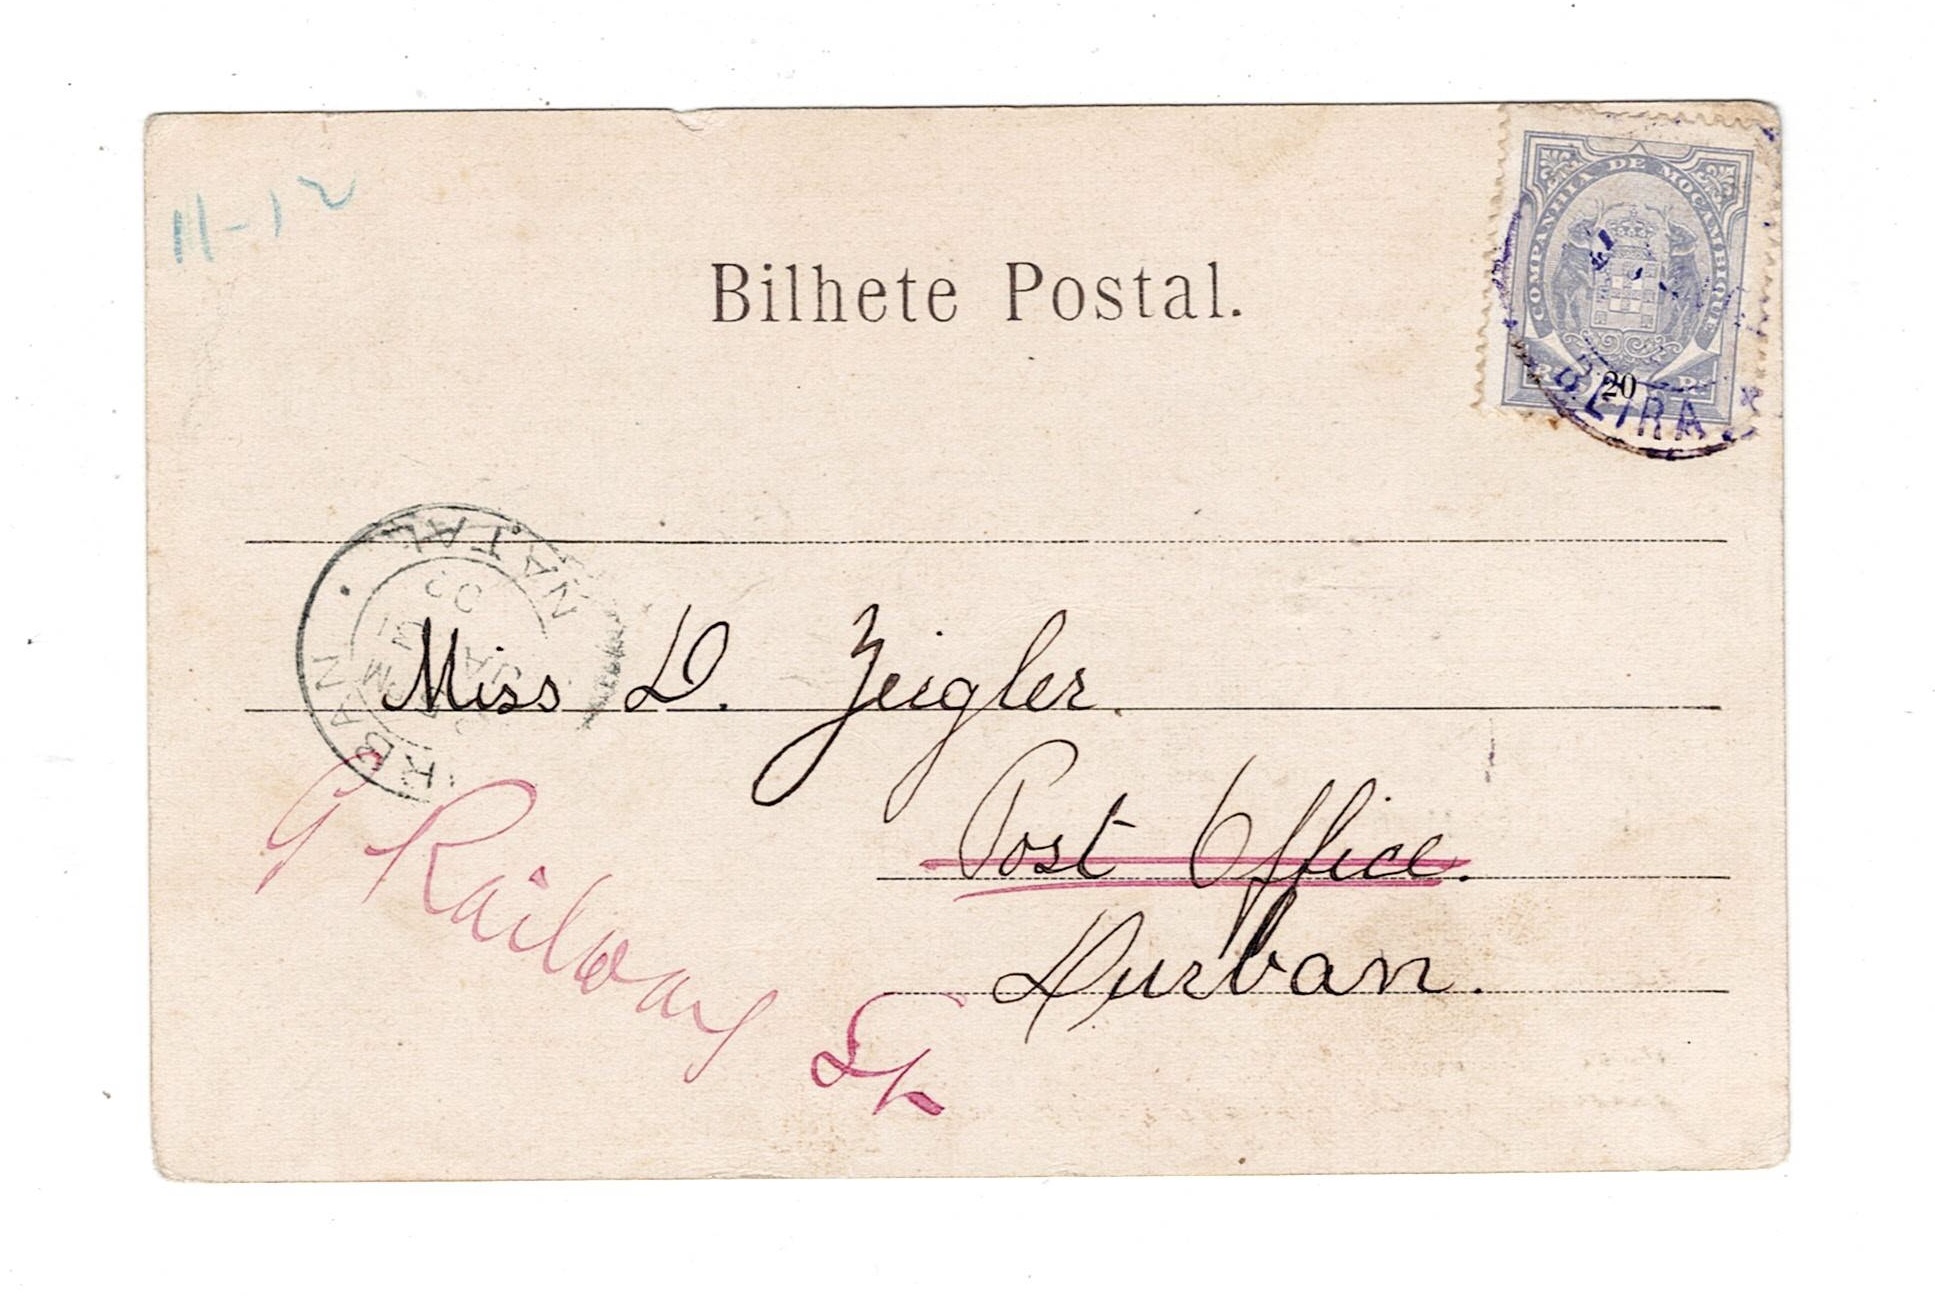 11-12
Bilhete Postal.
COMPANHIA DE MOÇAMBIQUE
20
BEIRA
NATAL
RBAN
JA
Miss D. Zeigler.
Post Office.
Durban.
Railway St